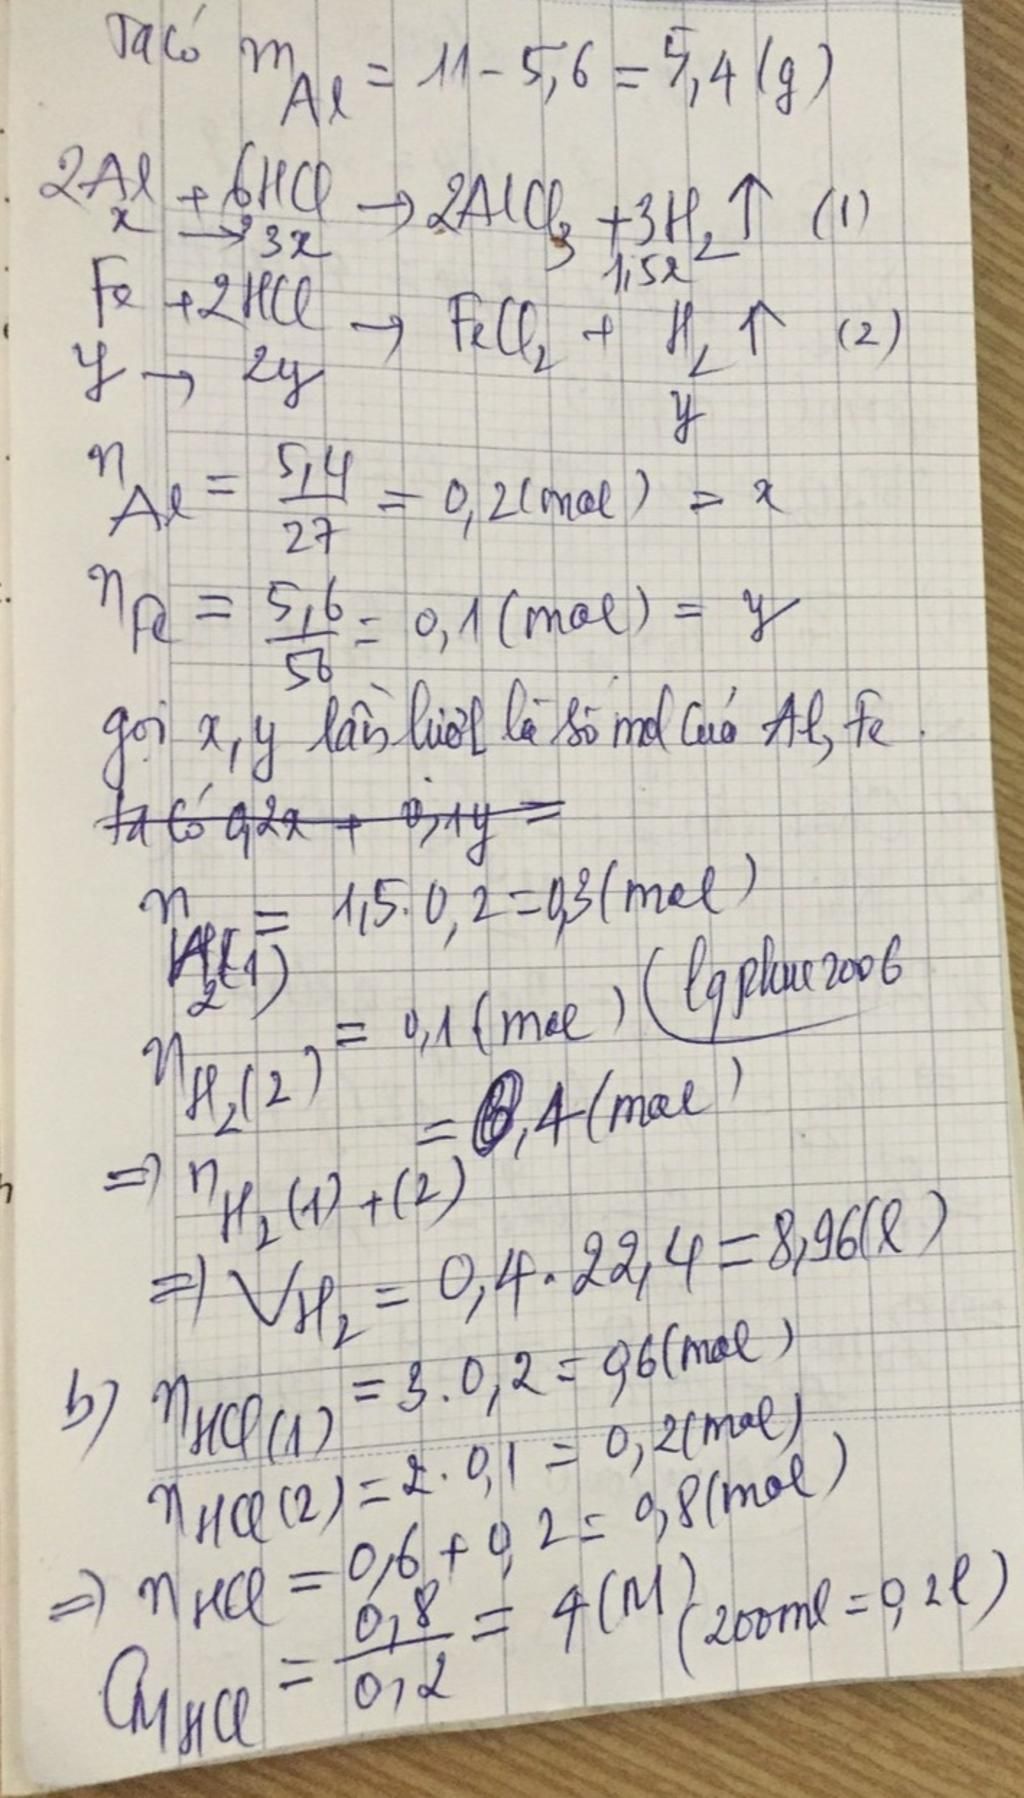 Ta có m_Al = 11 - 5,6 = 5,4 (g)
2Al + 6HCl → 2AlCl₃ + 3H₂ ↑ (1)
x → 3x 1,5x
Fe + 2HCl → FeCl₂ + H₂ ↑ (2)
y → 2y y
n_Al = 5,4/27 = 0,2 (mol) = x
n_Fe = 5,6/56 = 0,1 (mol) = y
gọi x, y lần lượt là số mol của Al, Fe.
ta có 0,2x + 0,1y =
n_H₂(1) = 1,5 . 0,2 = 0,3 (mol)
n_H₂(2) = 0,1 (mol) (lqphuc2006
⇒ n_H₂(1)+(2) = 0,4 (mol)
⇒ V_H₂ = 0,4 . 22,4 = 8,96 (l)
b) n_HCl(1) = 3 . 0,2 = 0,6 (mol)
n_HCl(2) = 2 . 0,1 = 0,2 (mol)
⇒ n_HCl = 0,6 + 0,2 = 0,8 (mol)
C_M HCl = 0,8/0,2 = 4 (M) (200ml = 0,2l)